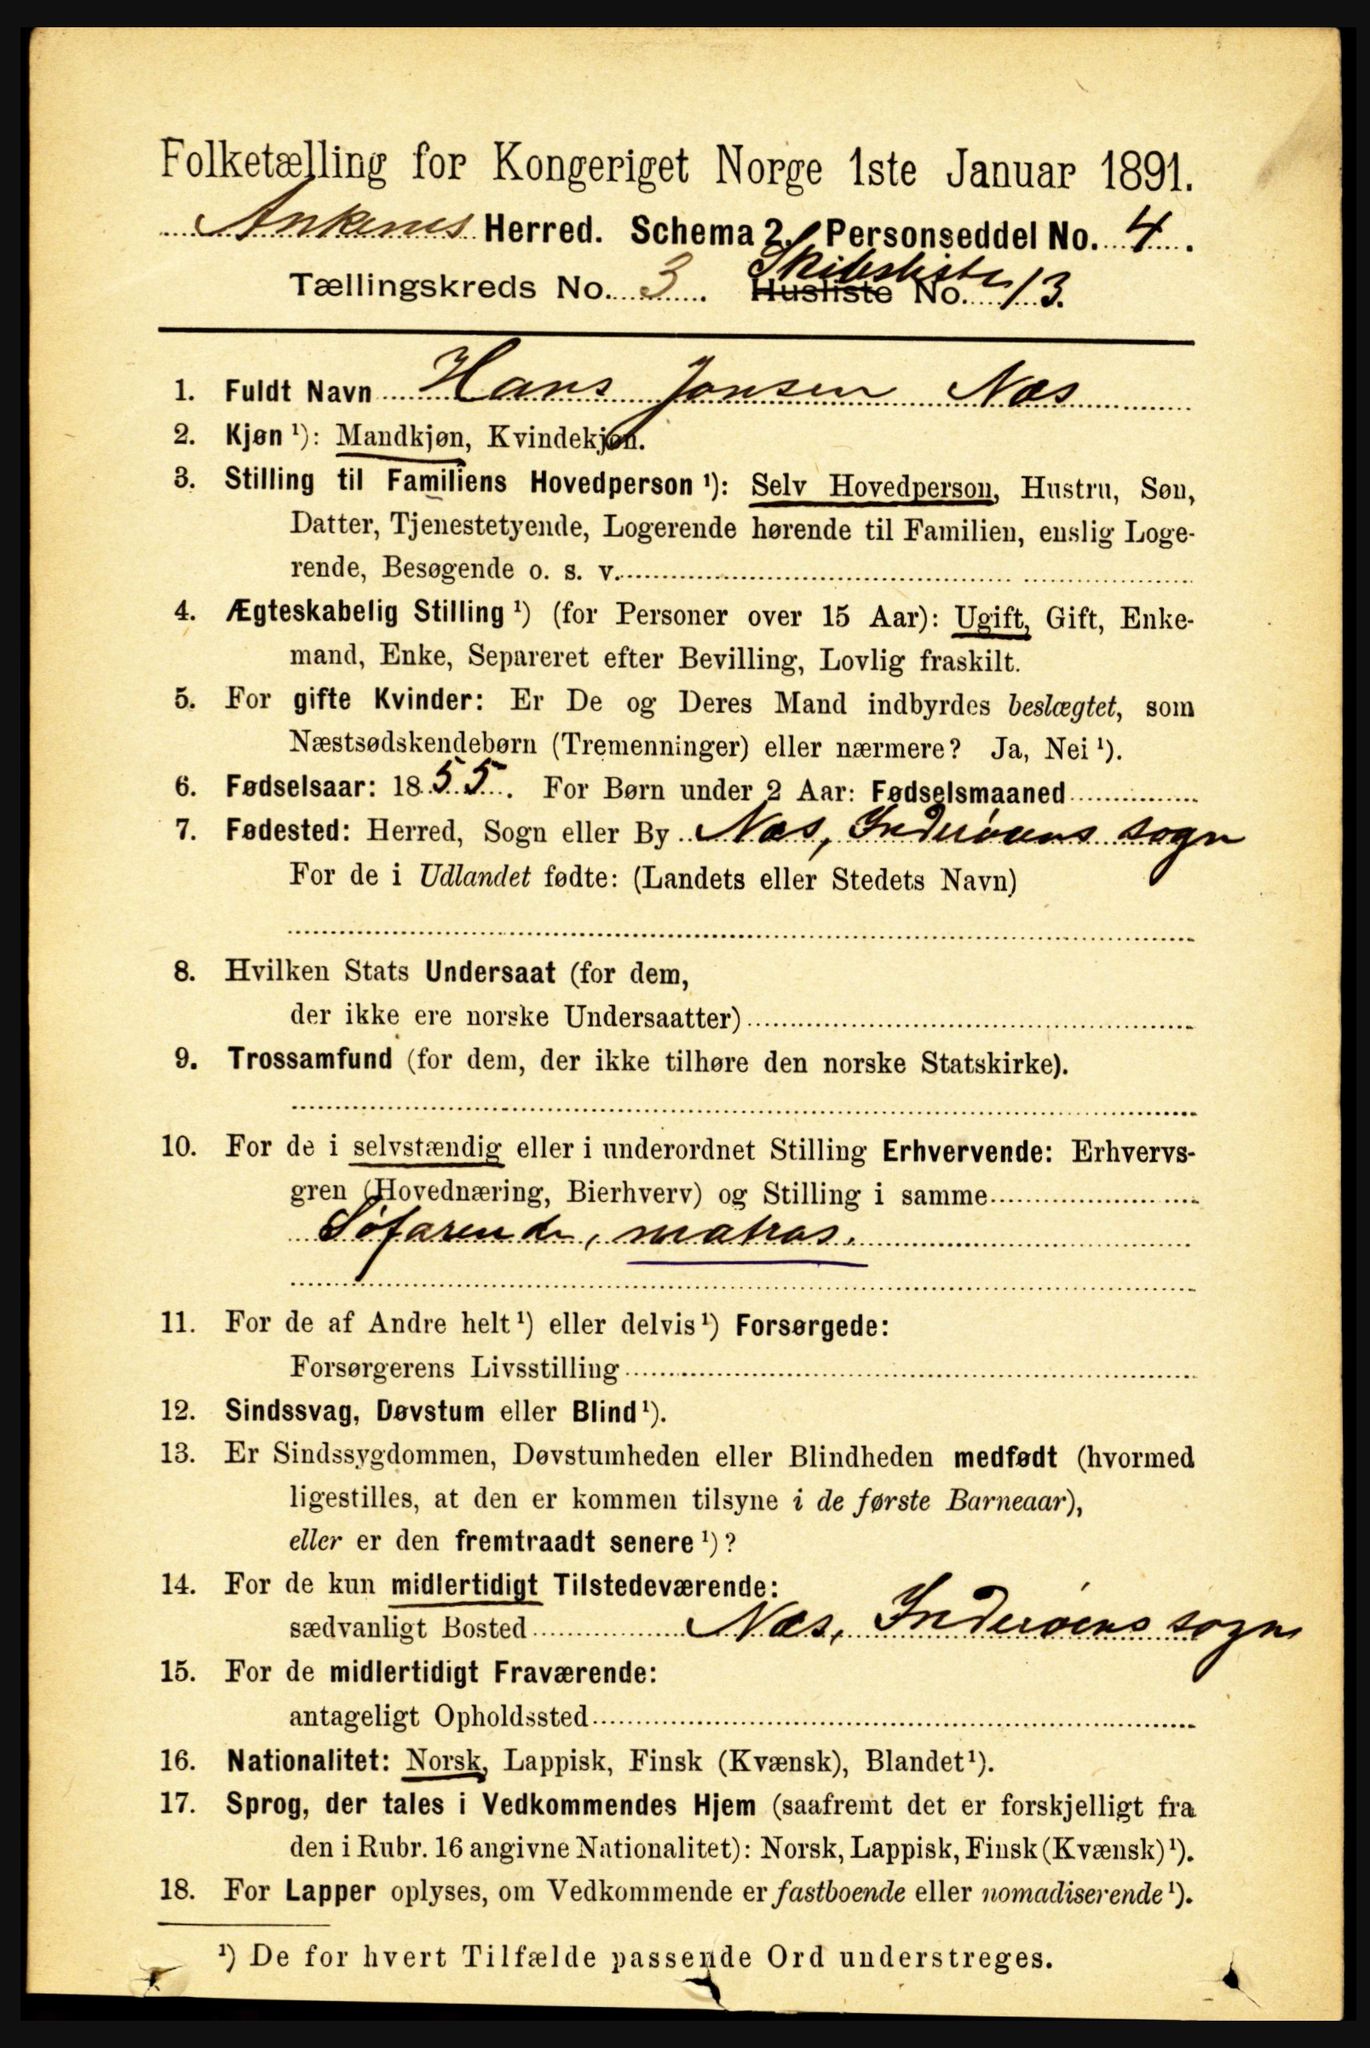 Folketælling for Kongeriget Norge 1ste Januar 1891.
Ankenes Herred. Schema 2. Personseddel No. 4.
Tællingskreds No. 3. Husliste Skibsliste No. 13.
1. Fuldt Navn Hans Jonsen Næs
2. Kjøn ¹): Mandkjøn, Kvindekjøn.
3. Stilling til Familiens Hovedperson ¹): Selv Hovedperson, Hustru, Søn,
Datter, Tjenestetyende, Logerende hørende til Familien, enslig Loge-
rende, Besøgende o. s. v.
4. Ægteskabelig Stilling ¹) (for Personer over 15 Aar): Ugift, Gift, Enke-
mand, Enke, Separeret efter Bevilling, Lovlig fraskilt.
5. For gifte Kvinder: Er De og Deres Mand indbyrdes beslægtet, som
Næstsødskendebørn (Tremenninger) eller nærmere? Ja, Nei ¹).
6. Fødselsaar: 1855. For Børn under 2 Aar: Fødselsmaaned
7. Fødested: Herred, Sogn eller By Næs, Inderøens sogn
For de i Udlandet fødte: (Landets eller Stedets Navn)
8. Hvilken Stats Undersaat (for dem,
der ikke ere norske Undersaatter)
9. Trossamfund (for dem, der ikke tilhøre den norske Statskirke).
10. For de i selvstændig eller i underordnet Stilling Erhvervende: Erhvervs-
gren (Hovednæring, Bierhverv) og Stilling i samme
Søfarende, matros.
11. For de af Andre helt ¹) eller delvis ¹) Forsørgede:
Forsørgerens Livsstilling
12. Sindssvag, Døvstum eller Blind ¹).
13. Er Sindssygdommen, Døvstumheden eller Blindheden medfødt (hvormed
ligestilles, at den er kommen tilsyne i de første Barneaar),
eller er den fremtraadt senere ¹)?
14. For de kun midlertidigt Tilstedeværende:
sædvanligt Bosted Næs, Inderøens sogn
15. For de midlertidigt Fraværende:
antageligt Opholdssted
16. Nationalitet: Norsk, Lappisk, Finsk (Kvænsk), Blandet ¹).
17. Sprog, der tales i Vedkommendes Hjem (saafremt det er forskjelligt fra
den i Rubr. 16 angivne Nationalitet): Norsk, Lappisk, Finsk (Kvænsk) ¹).
18. For Lapper oplyses, om Vedkommende er fastboende eller nomadiserende ¹).
¹) De for hvert Tilfælde passende Ord understreges.